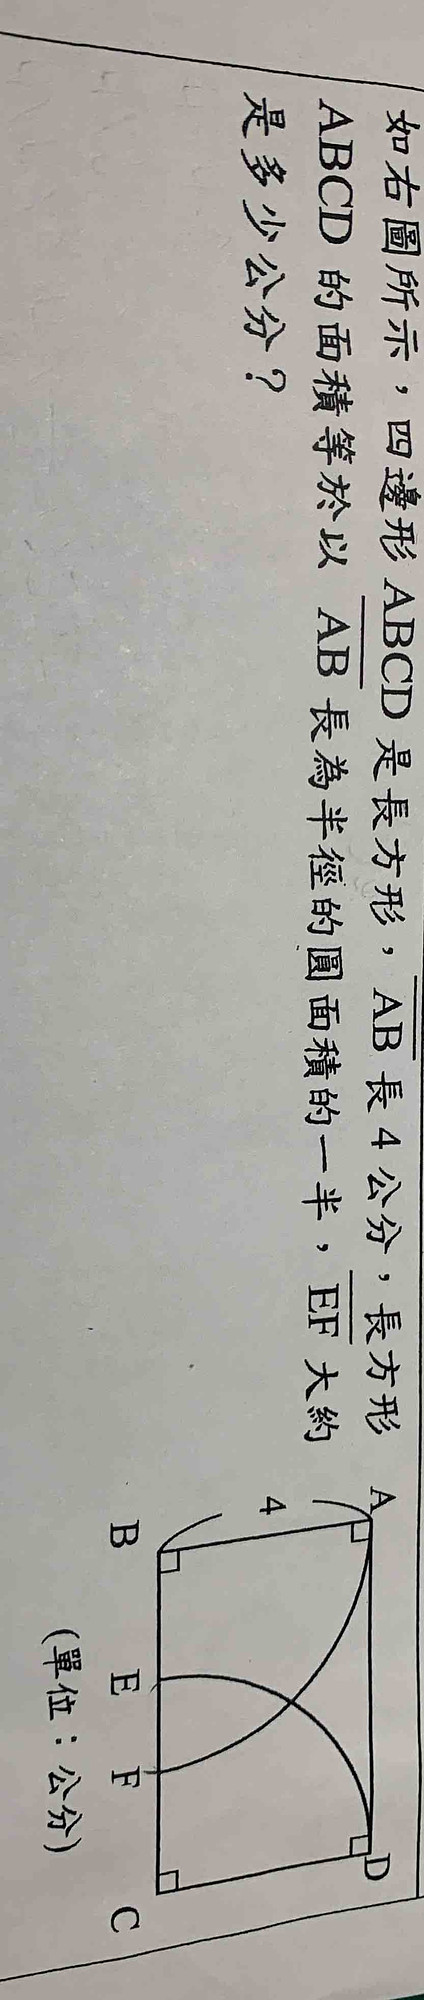 如右圖所示，四邊形 ABCD 是長方形，AB 長 4 公分，長方形
ABCD 的面積等於以 AB 長為半徑的圓面積的一半，EF 大約
是多少公分？
A
D
4
B
E
F
C
(單位：公分)